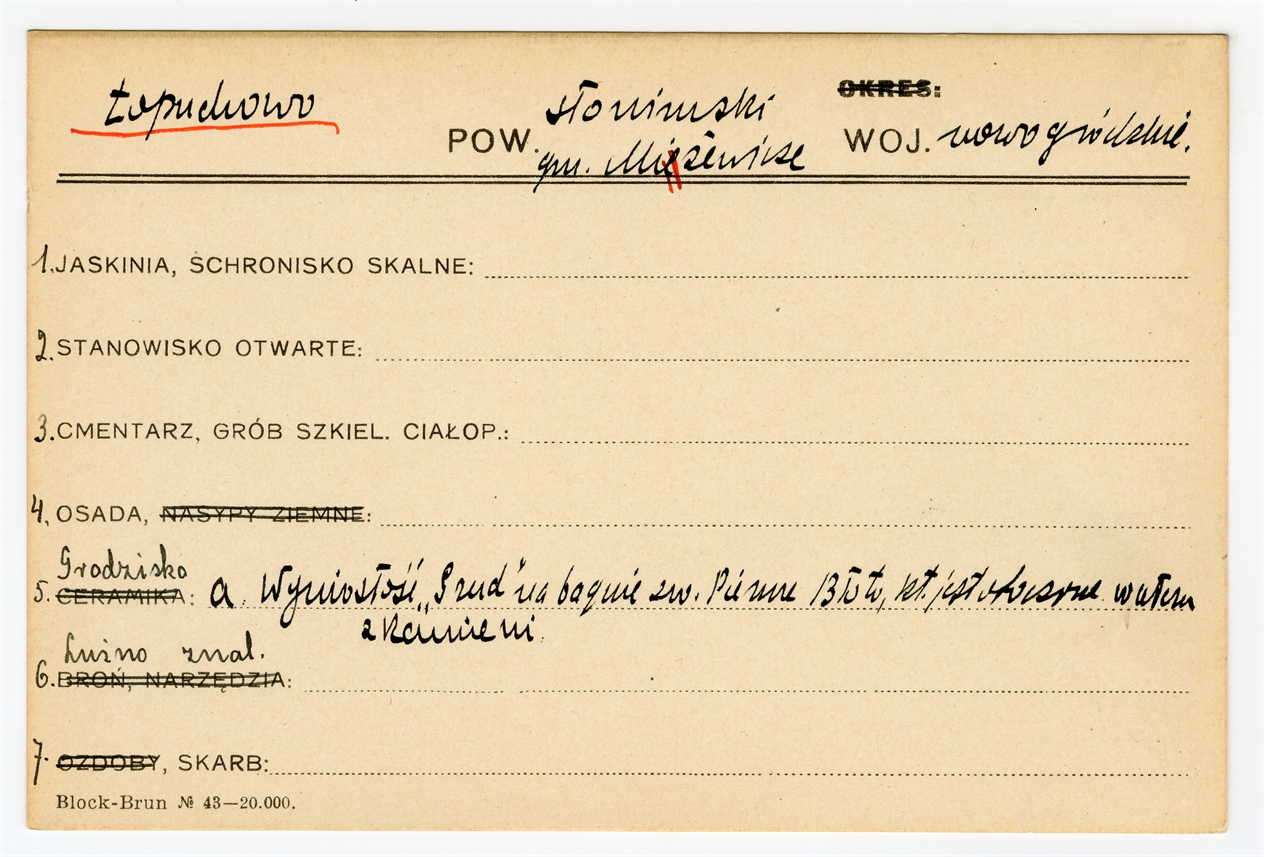 Łopuchowo
OKRES:
POW. słonimski WOJ. nowogródzkie.
gm. Miżewicze
1. JASKINIA, SCHRONISKO SKALNE:
2. STANOWISKO OTWARTE:
3. CMENTARZ, GRÓB SZKIEL. CIAŁOP.:
4. OSADA, NASYPY ZIEMNE:
Grodzisko
5. CERAMIKA: a. Wyniosłość „Grud" na bagnie zw. Błoto, kt. jest otoczone wałem
z kamieni.
Luźno znal.
6. BROŃ, NARZĘDZIA:
7. OZDOBY, SKARB:
Block-Brun № 43—20.000.